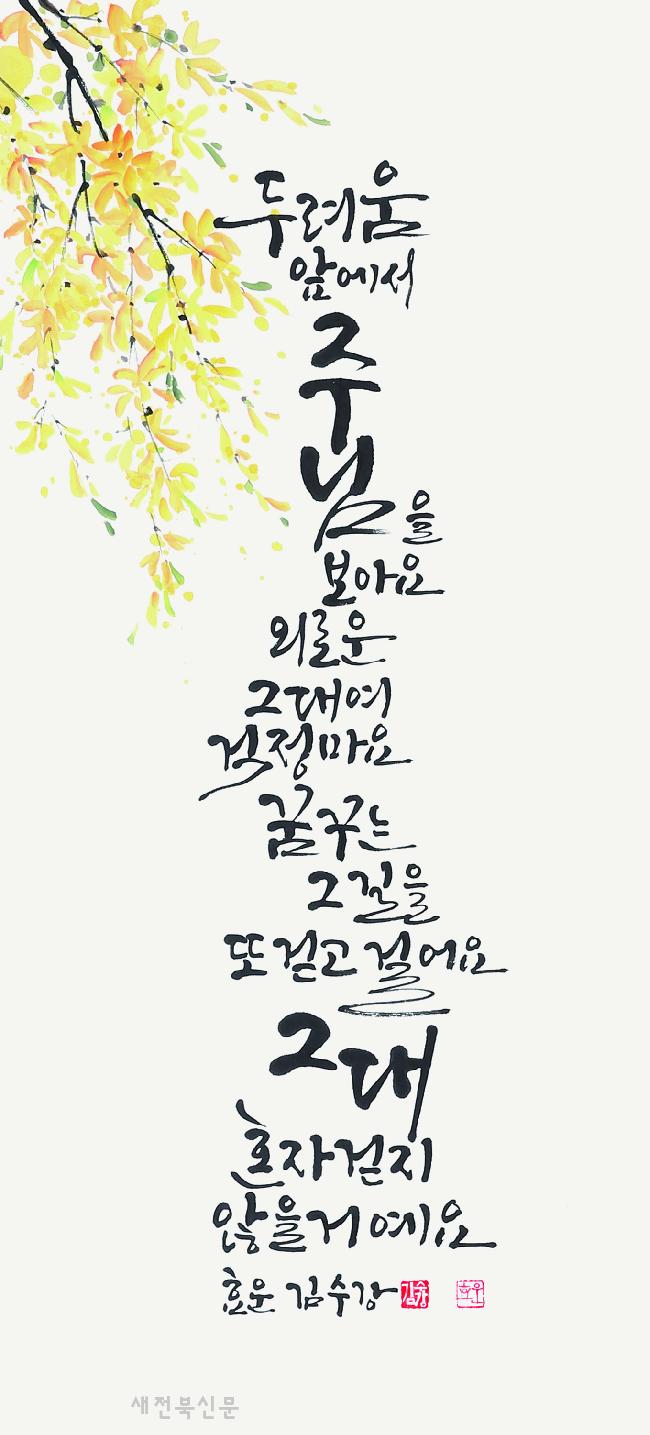 두려움
앞에서
주
님을
보아요
외로운
그대여
걱정마요
꿈꾸는
그길을
또걷고걸어요
그대
혼자걷지
않을거예요
효운 김수강
새전북신문